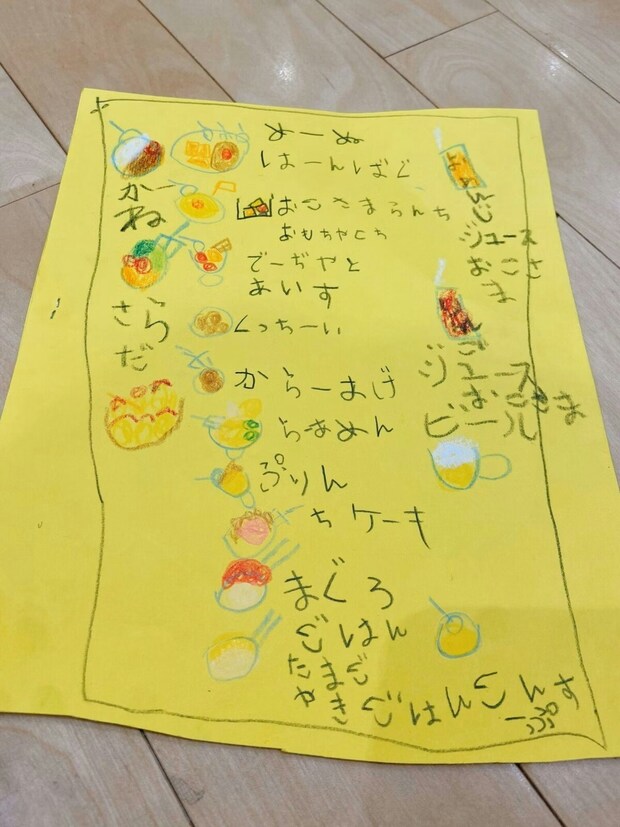 めーぬ
はーんばぐ
かー
ね
おこさまらんち
おもちゃとち
でーぢやと
あいす
さら
だ
くっちーい
からーまげ
らあめん
ぷりん
ちケーキ
まぐろ
ごはん
たまご
やき
ごはん
こん
すーぷ
ジュース
おこさ
ま
ご
ジュース
おこさま
ビール